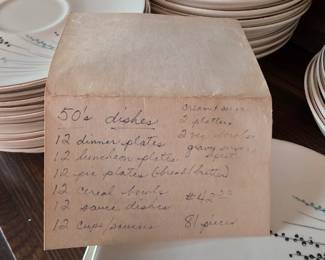 50's dishes
12 dinner plates
12 luncheon plates
12 pie plates (bread/butter)
12 cereal bowls
12 sauce dishes
12 cups/saucers
cream & sugar
2 platters
2 veg bowls
gravy
$42.00
81 pieces